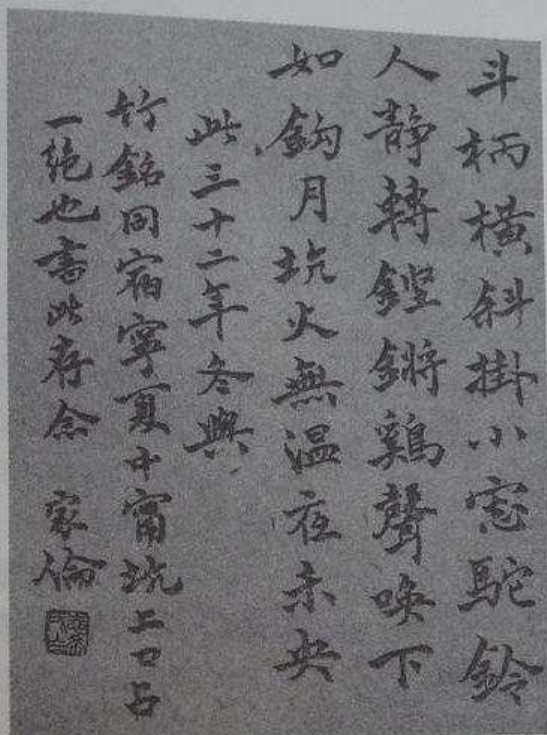 斗柄橫斜掛小窓駝鈴
人静轉鏗鏘鷄聲喚下
如鈎月坑火無温夜未央
此三十二年冬與
竹銘同宿寧夏中甯坑上口占
一绝也書此存念 家倫